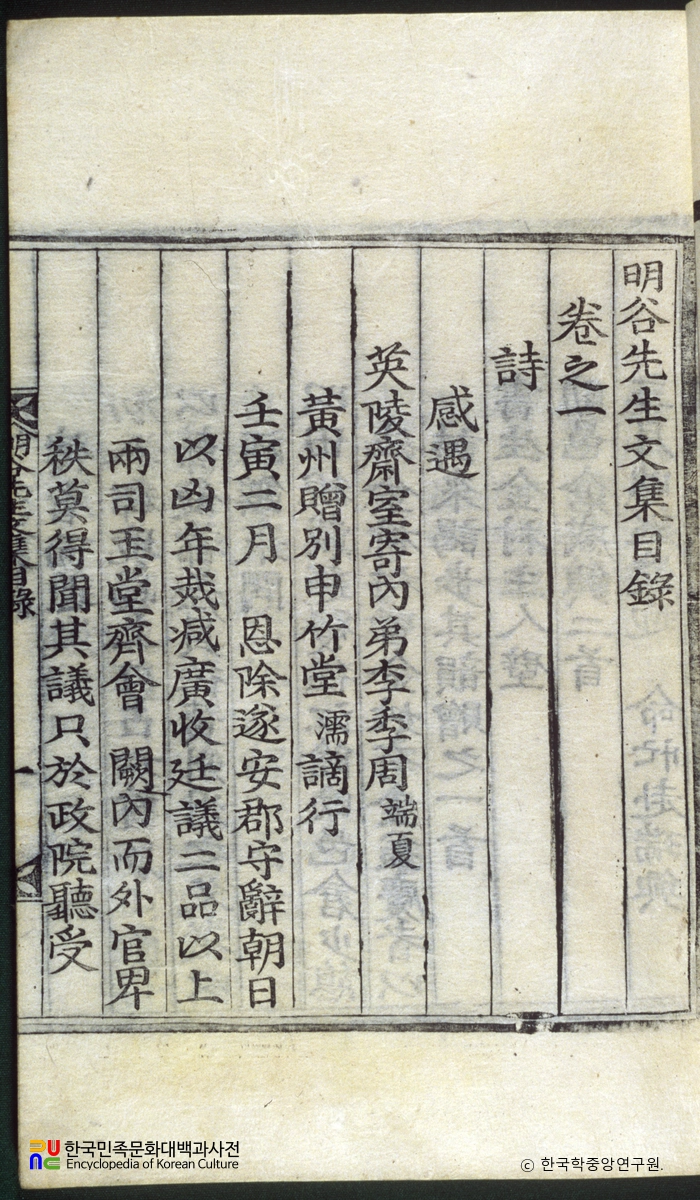 明谷先生文集目錄
卷之一
詩
感遇
英陵齋室寄內弟李季周 端夏
黃州贈別申竹堂 濡 謫行
壬寅二月 恩除遂安郡守辭朝日
以凶年烖減廣收廷議二品以上
兩司玉堂齊會 闕內而外官卑
秩莫得聞其議只於政院聽受
明谷先生文集目錄
一
한국민족문화대백과사전
Encyclopedia of Korean Culture
© 한국학중앙연구원.